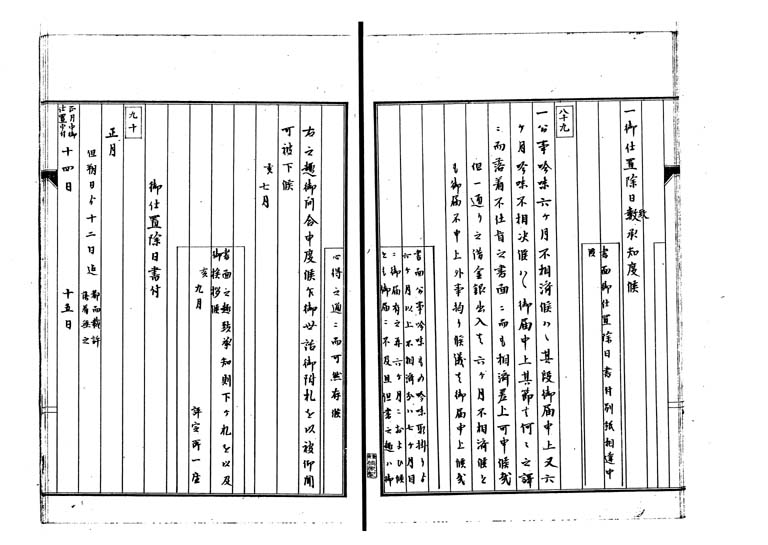 一御仕置除日致承知度候
書面御仕置除日書付別紙相達申
候
八十九
一公事吟味六ケ月不相済候ハヽ其段御届申上又六
ケ月吟味不相決候ハヽ御届申上其節者何々之訳
ニ而落着不仕旨之書面ニ而も相済差上可申候哉
但一通り之借金銀出入者六ケ月不相済候と
も御届不申上外事拘り候儀者御届申上候哉
書面公事吟味もの吟味取掛りより
六ケ月以上不相済分ハ七ケ月目
ニ御届有之再六ケ月ニおよひ候
とも御届ニ不及且但書之趣ハ御
心得之通ニ而可然存候
右之趣御問合申度候乍御世話御附札を以被仰聞
可被下候
亥七月
書面之趣致承知則下ケ札を以及
御挨拶候
亥九月
評定所一座
御仕置除日書付
九十
正月
但朔日より十二日迄
正月中御
仕置申付
十四日
十五日